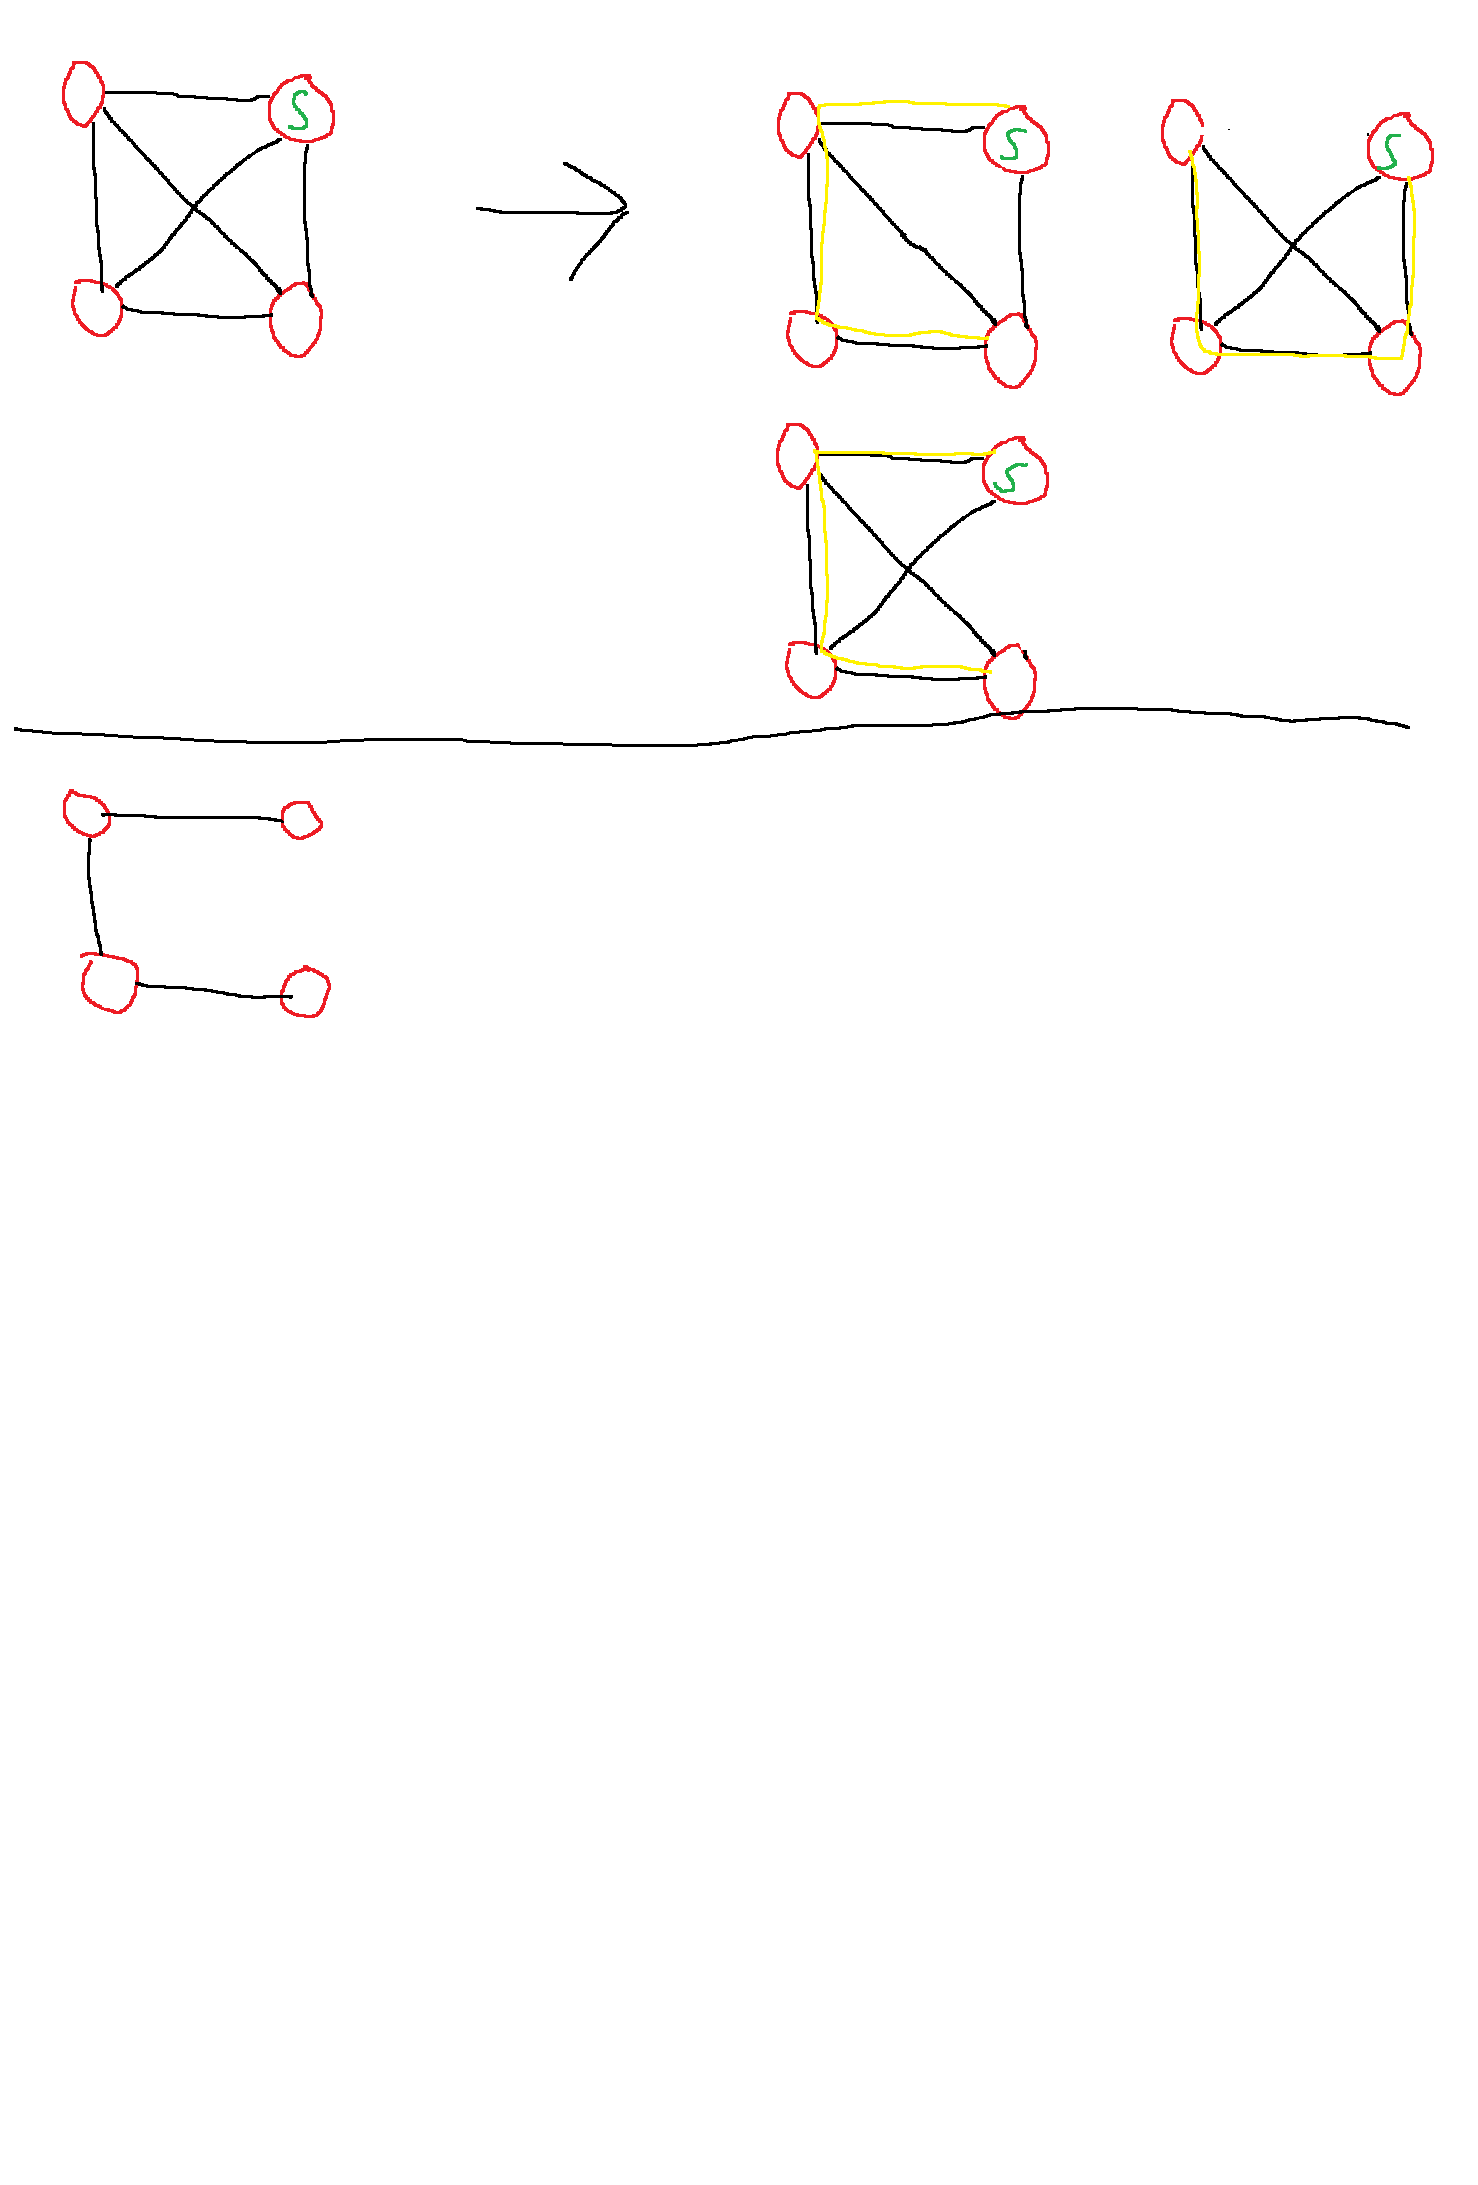 S
S
S
S